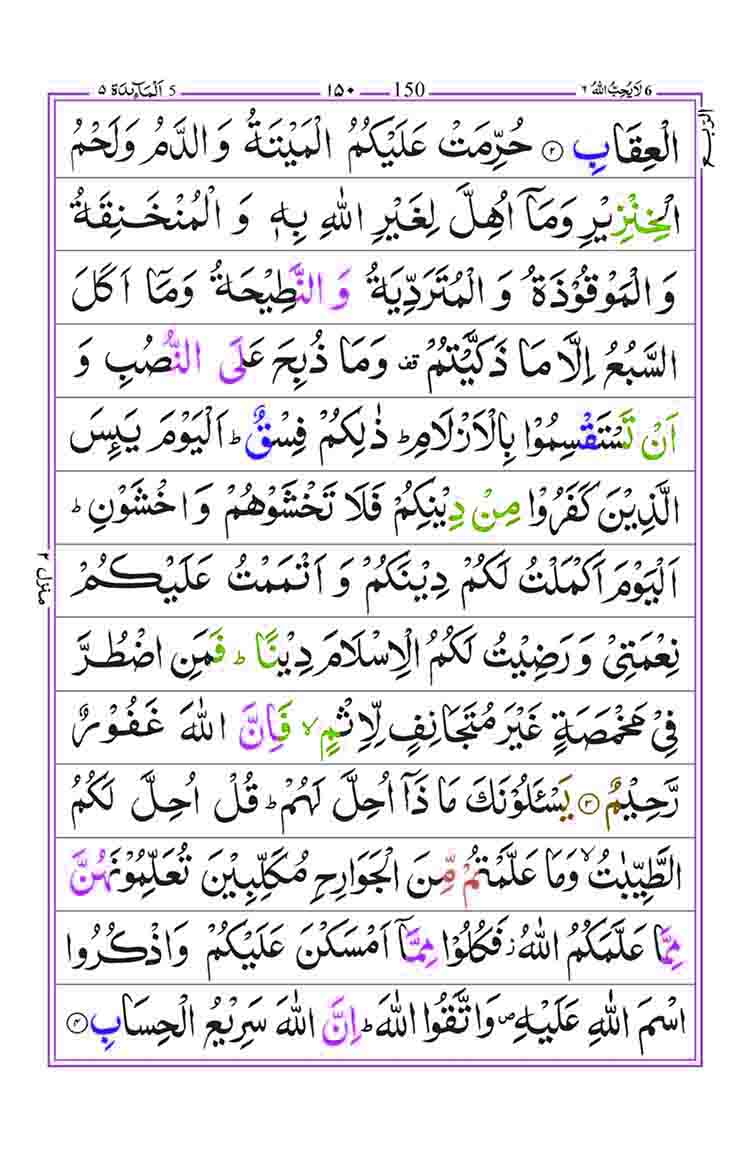 5 اَلْمَآئِدَة ٥ 150 ١٥٠ 6 لَا يُحِبُّ اللّٰهُ ٦
الربع
الْعِقَابِ ﴿٢﴾ حُرِّمَتْ عَلَيْكُمُ الْمَيْتَةُ وَ الدَّمُ وَلَحْمُ
الْخِنْزِيْرِ وَمَآ اُهِلَّ لِغَيْرِ اللّٰهِ بِهٖ وَ الْمُنْخَنِقَةُ
وَ الْمَوْقُوْذَةُ وَ الْمُتَرَدِّيَةُ وَ النَّطِيْحَةُ وَمَآ اَكَلَ
السَّبُعُ اِلَّا مَا ذَكَّيْتُمْ ۫ وَمَا ذُبِحَ عَلَى النُّصُبِ وَ
اَنْ تَسْتَقْسِمُوْا بِالْاَزْلَامِ ؕ ذٰلِكُمْ فِسْقٌ ؕ اَلْيَوْمَ يَئِسَ
الَّذِيْنَ كَفَرُوْا مِنْ دِيْنِكُمْ فَلَا تَخْشَوْهُمْ وَ اخْشَوْنِ ؕ
اَلْيَوْمَ اَكْمَلْتُ لَكُمْ دِيْنَكُمْ وَ اَتْمَمْتُ عَلَيْكُمْ
نِعْمَتِيْ وَ رَضِيْتُ لَكُمُ الْاِسْلَامَ دِيْنًا ؕ فَمَنِ اضْطُرَّ
فِيْ مَخْمَصَةٍ غَيْرَ مُتَجَانِفٍ لِّاِثْمٍ ۙ فَاِنَّ اللّٰهَ غَفُوْرٌ
رَّحِيْمٌ ﴿٣﴾ يَسْـَٔلُوْنَكَ مَا ذَآ اُحِلَّ لَهُمْ ؕ قُلْ اُحِلَّ لَكُمُ
الطَّيِّبٰتُ ۙ وَمَا عَلَّمْتُمْ مِّنَ الْجَوَارِحِ مُكَلِّبِيْنَ تُعَلِّمُوْنَهُنَّ
مِمَّا عَلَّمَكُمُ اللّٰهُ ؗ فَكُلُوْا مِمَّآ اَمْسَكْنَ عَلَيْكُمْ وَاذْكُرُوا
اسْمَ اللّٰهِ عَلَيْهِ ۪ وَاتَّقُوا اللّٰهَ ؕ اِنَّ اللّٰهَ سَرِيْعُ الْحِسَابِ ﴿٤﴾
منزل ٢